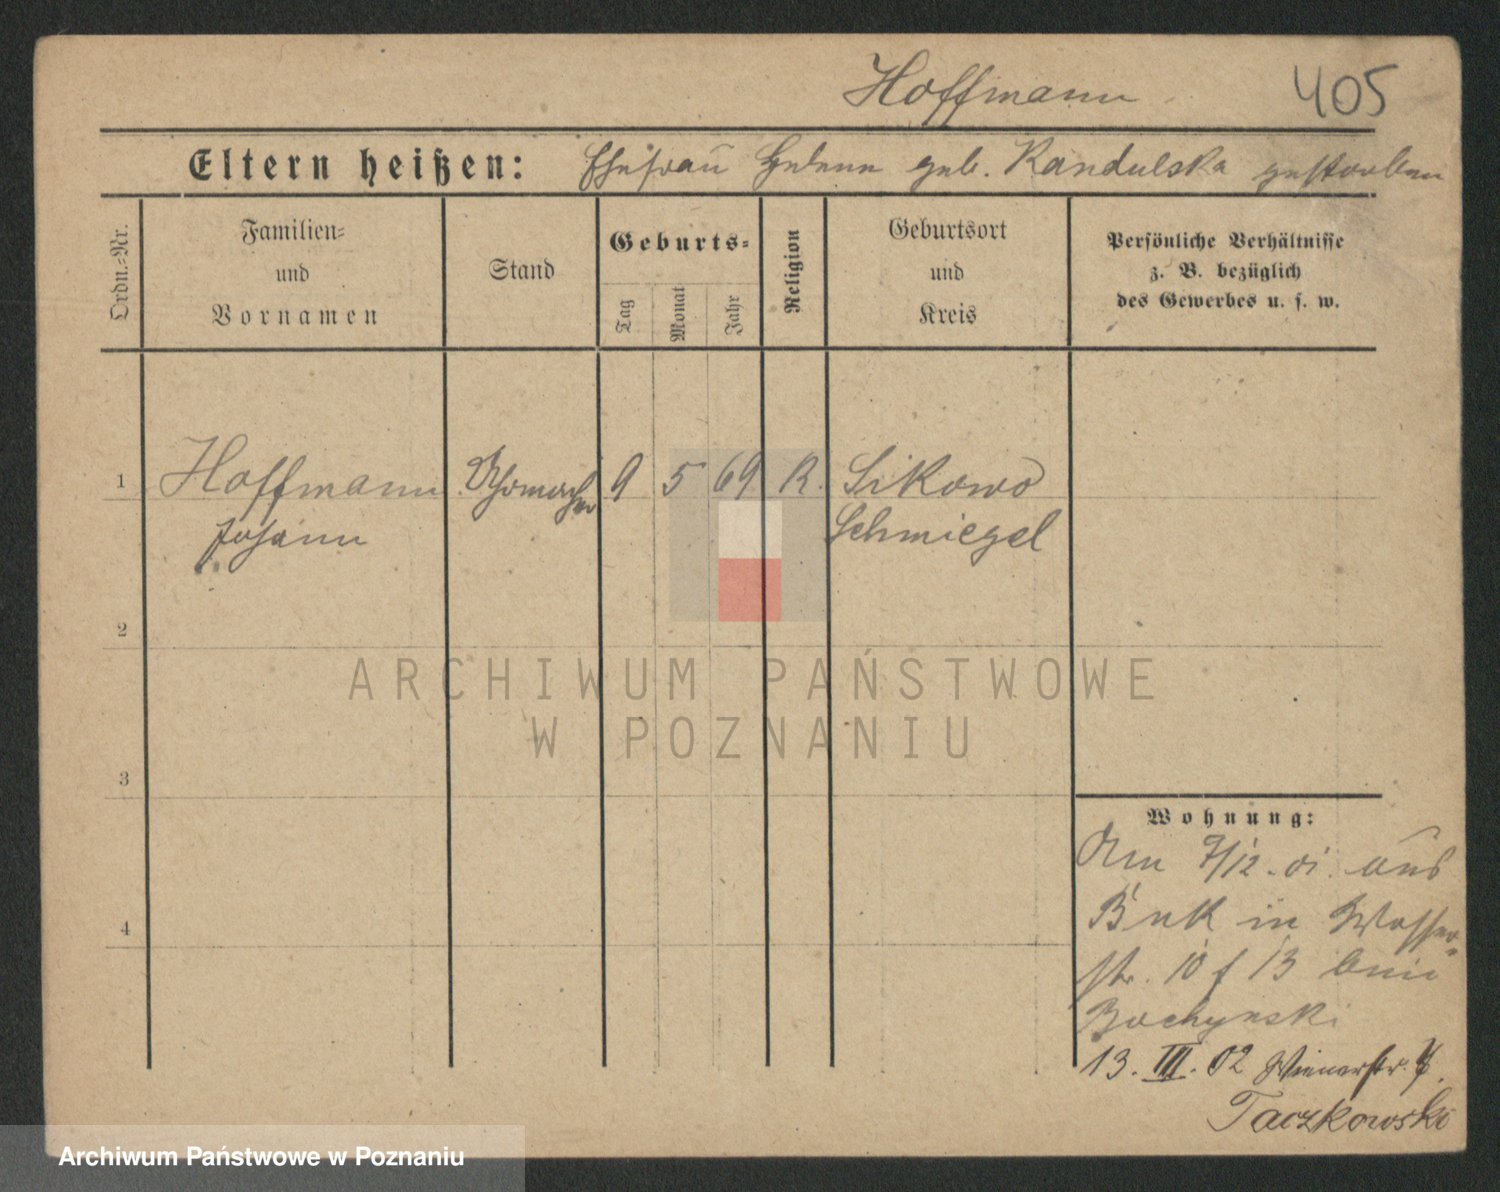 Hoffmann 405
Eltern heißen: Ehefrau Helene geb. Kandulska gestorben
Ordn.-Nr.
Familien-
und
Vornamen
Stand
Geburts-
Tag
Monat
Jahr
Religion
Geburtsort
und
Kreis
Persönliche Verhältnisse
z. B. bezüglich
des Gewerbes u. s. w.
1 Hoffmann Uhrmacher 9 5 69 K. Sikowo
Johann Schmiegel
2
3
4
Wohnung:
Am 7/12.01. aus
Buk in Wasser-
str. 10 f 13 bei
Bochynski
13. III. 02 Wienerstr. 7.
Taczkowski
ARCHIWUM PAŃSTWOWE
W POZNANIU
Archiwum Państwowe w Poznaniu